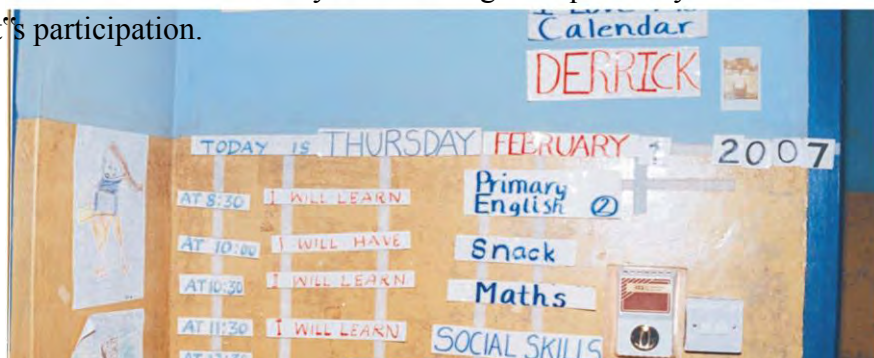 t"s participation.
Calendar
DERRICK
TODAY IS THURSDAY FEBRUARY 2007
AT 8:30 I WILL LEARN Primary English ②
AT 10:00 I WILL HAVE Snack
AT 10:30 I WILL LEARN Maths
AT 11:30 I WILL LEARN SOCIAL SKILLS